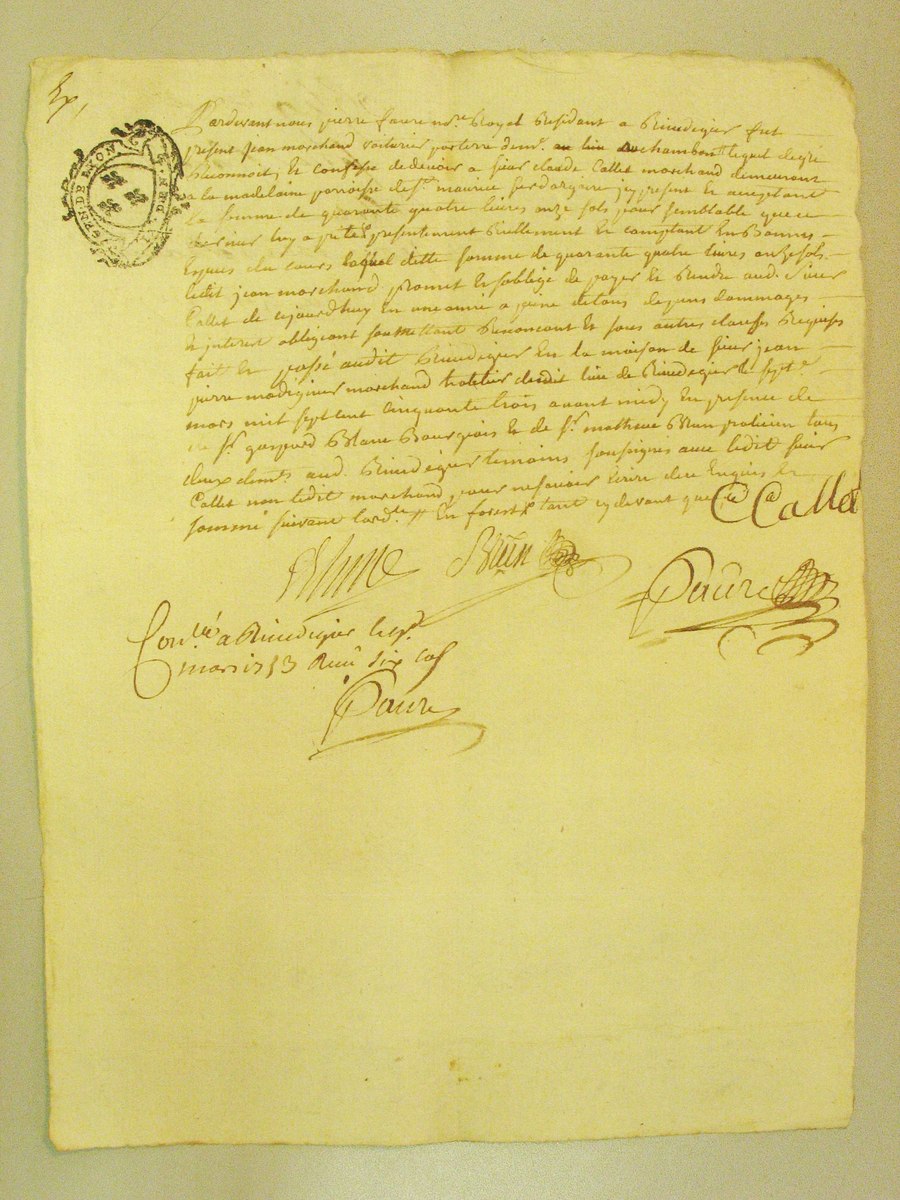 Ex,
GEN. DE LYON
Pardevant nous pierre faure nore. Royal Residant a Rivedigier fut
present Jean marchand voiturier par terre demt. au lieu du chambon lequel de gre
Reconnoit, et confesse de devoir a sieur claude Callet marchand demeurant
a la madelaine parroisse de st. maurice sur dargoire icy present et acceptant
la somme de quarante quatre livres onze sols pour semblable que ce
dernier luy a preté presentement Reellement et comptant En Bonnes
Especes du cours laquelle ditte somme de quarante quatre livres onze sols
ledit jean marchand promet et soblige de payer et Rendre aud. sieur
Callet de cejourdhuy en une année a peine de tous depens dommages
et interest obligeant soumettant Renoncant et sous autres clauses Requises
fait et passé audit Rivedigier En la maison de sieur jean
pierre marchand hotelier dudit lieu de Rivedigier le sept.
mars mil sept cent cinquante trois avant midy En presence de
de sr. gaspard Blanc Bourgeois et de sr. mathieu Brun praticien tous
deux dudt. aud. Rivedigier temoins soussignés avec ledit sieur
Callet non ledit marchand pour ne scavoir écrire de ce Enquis et
sommé suivant lord. En forest tant cy devant que
C Callet
Blanc Brun
Faure
Conllé a Rivedigier le 7e.
mars 1753 Reçu six sols
Faure